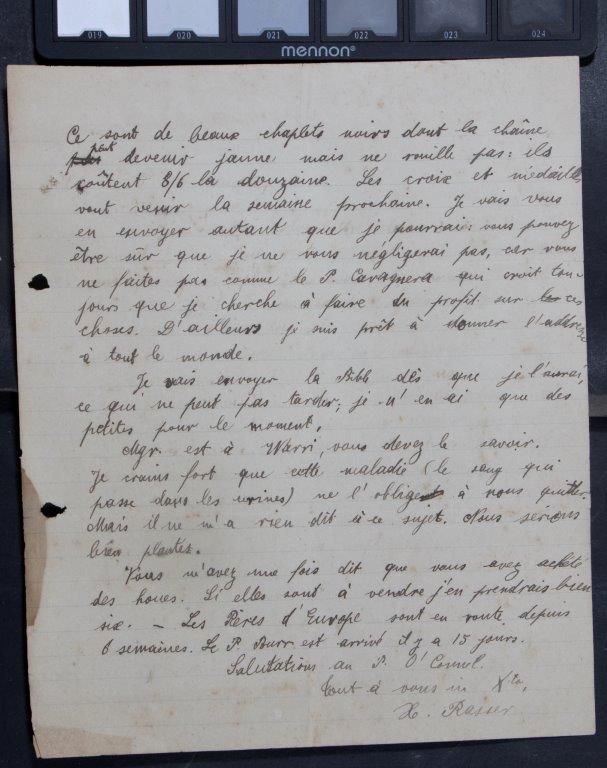 019 020 021 022 023 024
mennon®
Ce sont de beaux chaplets noirs dont la chaîne
peut devenir jaune mais ne rouille pas: ils
coûtent 8/6 la douzaine. Les croix et médailles
vont venir la semaine prochaine. Je vais vous
en envoyer autant que je pourrai: vous pouvez
être sûr que je ne vous négligerai pas, car vous
ne faites pas comme le P. Cavagnera qui croit tou-
jours que je cherche à faire du profit sur les ces
choses. D'ailleurs je suis prêt à donner l'addresse
à tout le monde.
Je vais envoyer la Bible dès que je l'aurai,
ce qui ne peut pas tarder; je n'en ai que des
petites pour le moment.
Mgr. est à Warri, vous devez le savoir.
Je crains fort que cette maladie (le sang qui
passe dans les urines) ne l'oblige à nous quitter.
Mais il ne m'a rien dit à ce sujet. Nous serions
bien plantés.
Vous m'avez une fois dit que vous avez acheté
des houes. Si elles sont à vendre j'en prendrais bien
six. — Les Pères d'Europe sont en route depuis
6 semaines. Le P. est arrivé il y a 15 jours.
Salutations au P. O'Connol.
Tout à vous in Xto,
X. Rasser